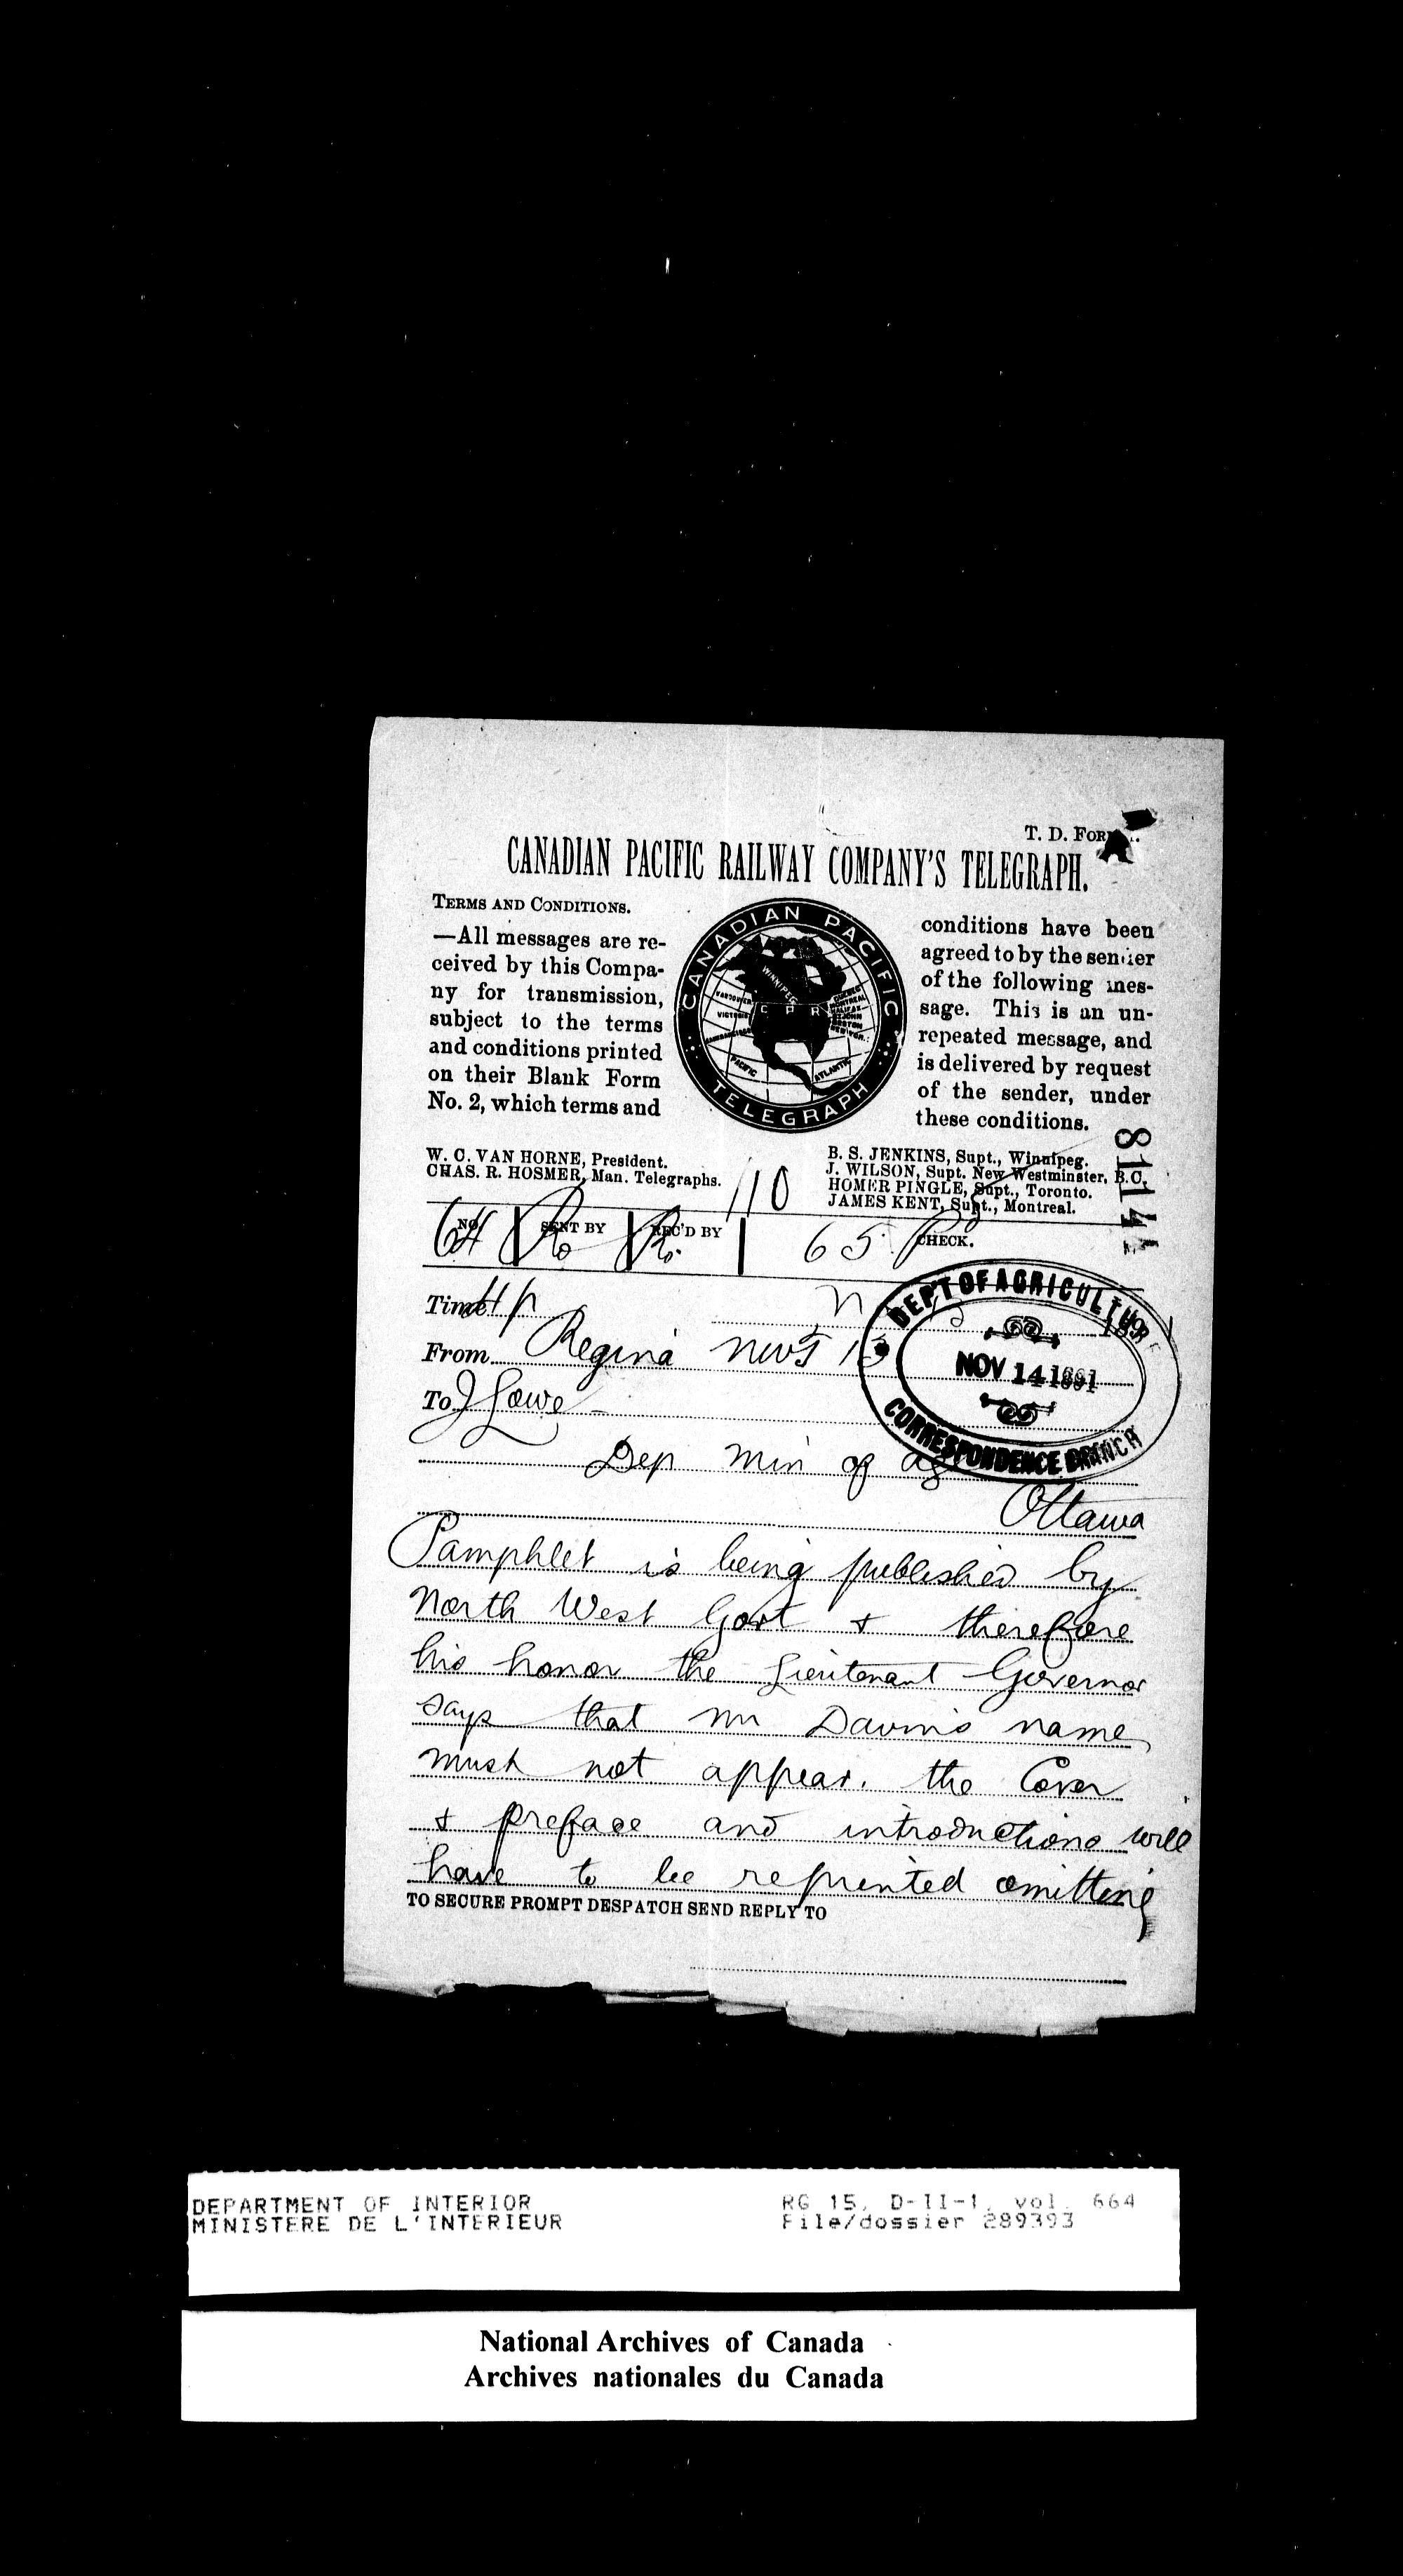 T. D. FORM
CANADIAN PACIFIC RAILWAY COMPANY'S TELEGRAPH.
TERMS AND CONDITIONS.
—All messages are re-
ceived by this Compa-
ny for transmission,
subject to the terms
and conditions printed
on their Blank Form
No. 2, which terms and
CANADIAN PACIFIC
WINNIPEG
C P R
PACIFIC
ATLANTIC
TELEGRAPH
conditions have been
agreed to by the sender
of the following mes-
sage. This is an un-
repeated message, and
is delivered by request
of the sender, under
these conditions.
W. C. VAN HORNE, President.
CHAS. R. HOSMER, Man. Telegraphs.
B. S. JENKINS, Supt., Winnipeg.
J. WILSON, Supt. New Westminster, B.C.
HOMER PINGLE, Supt., Toronto.
JAMES KENT, Supt., Montreal.
81144
110
No. 64 SENT BY REC'D BY 65 CHECK.
Time
From Regina NWT 13
To J Lowe
DEPT OF AGRICULTURE
NOV 14 1891
CORRESPONDENCE BRANCH
Dep Min of Ag
Ottawa
Pamphlet is being published by
North West Govt & therefore
his honor the Lieutenant Governor
says that Mr Davins name
must not appear. the Cover
& preface and introductions will
have to be reprinted omitting
TO SECURE PROMPT DESPATCH SEND REPLY TO
DEPARTMENT OF INTERIOR RG 15, D-II-1, vol. 664
MINISTERE DE L'INTERIEUR File/dossier 289393
National Archives of Canada
Archives nationales du Canada